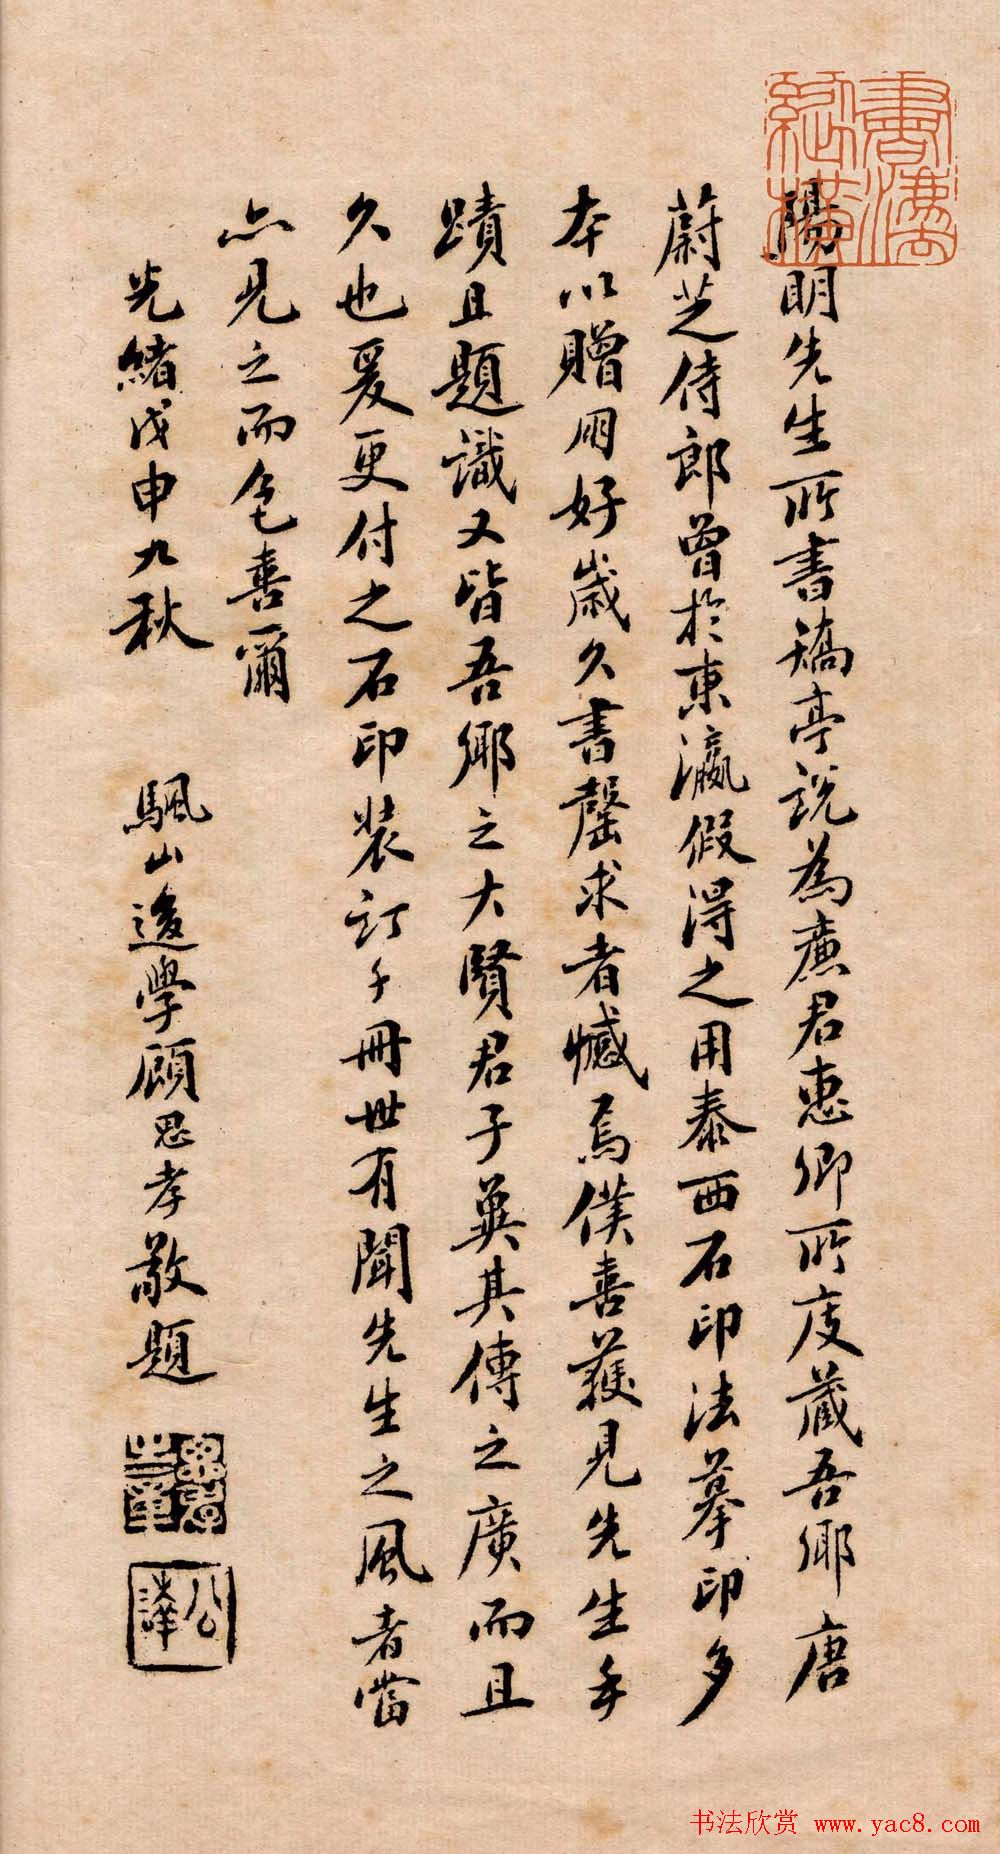 陽明先生所書矯亭說為廉君惠卿所庋藏吾鄉唐
蔚芝侍郎曾於東瀛假得之用泰西石印法摹印多
本以贈同好歲久書罄求者憾焉僕喜獲見先生手
蹟且題識又皆吾鄉之大賢君子冀其傳之廣而且
久也爰更付之石印裝訂千冊世有聞先生之風者當
亦見之而色喜爾
光緒戊申九秋
颿山後學顧思孝敬題
公
書法欣赏 www.yac8.com